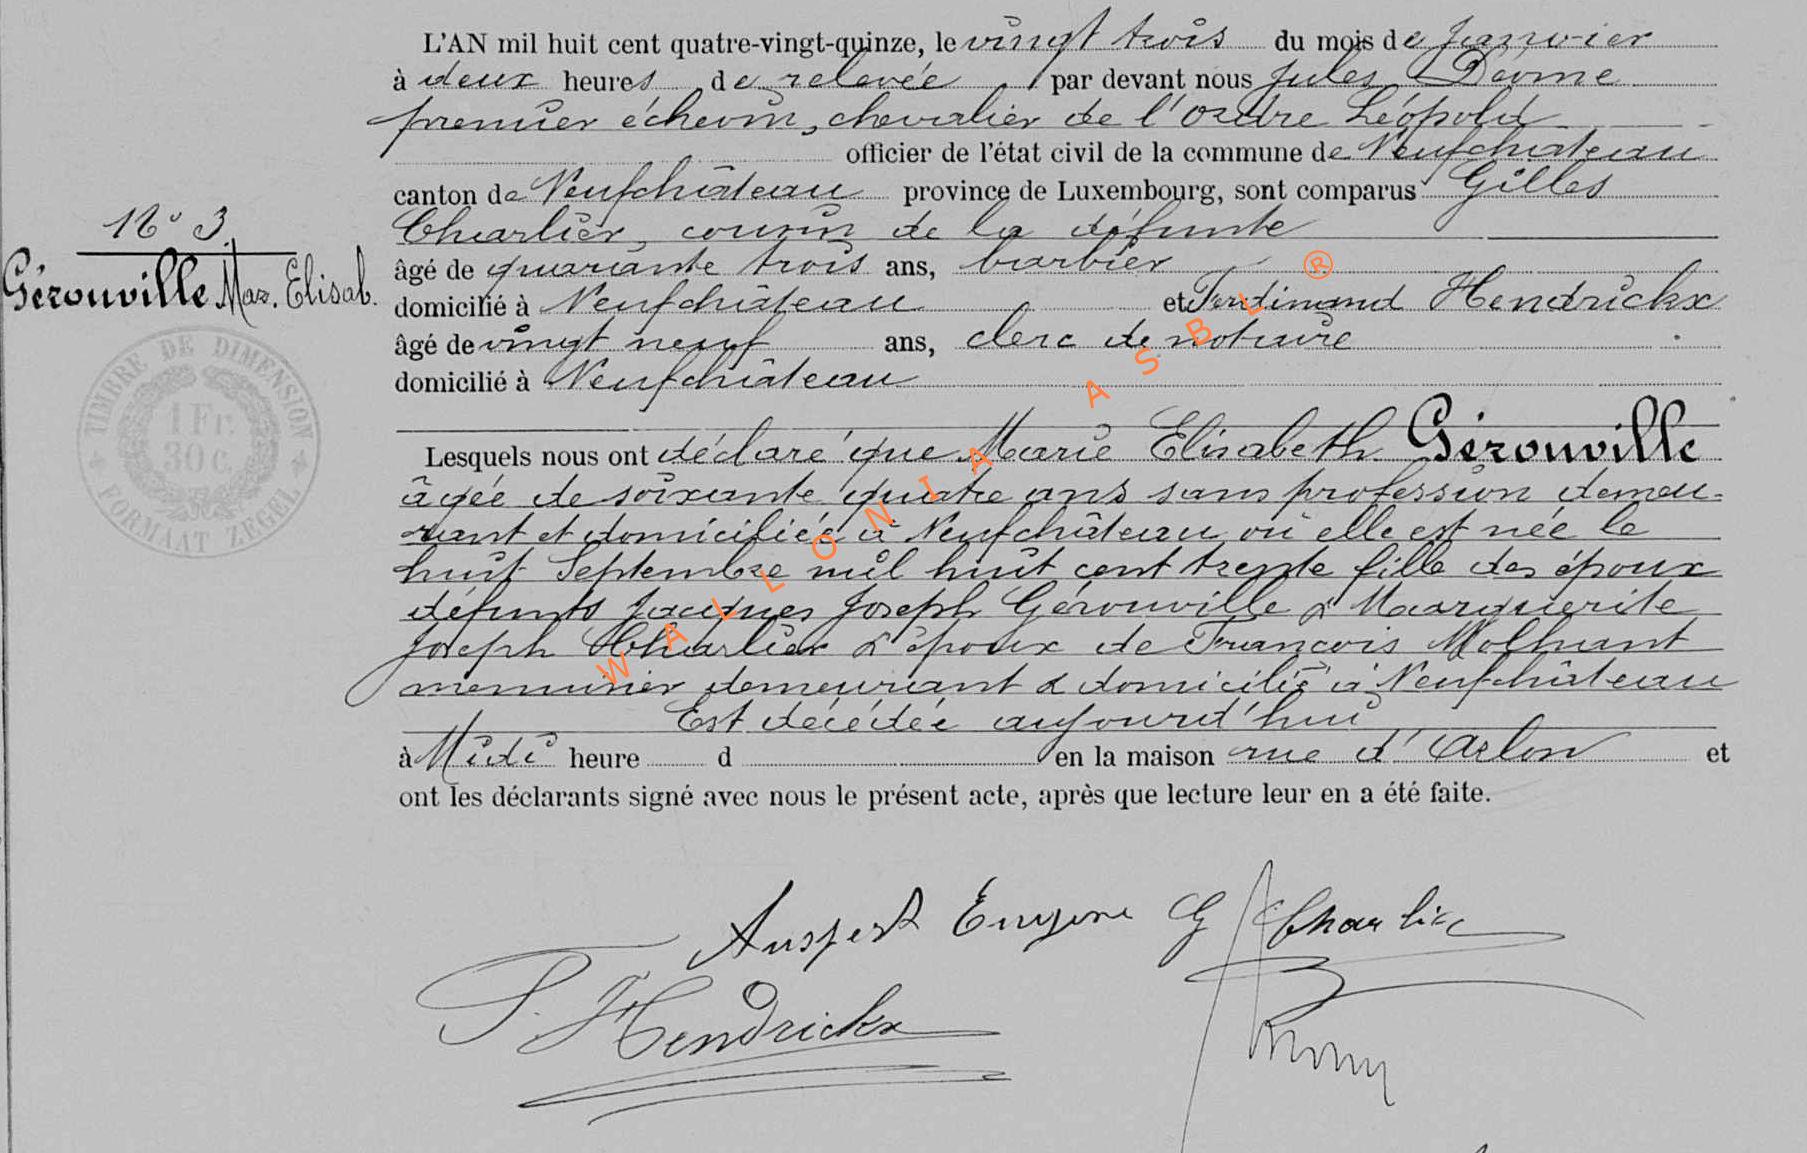 L'AN mil huit cent quatre-vingt-quinze, le vingt trois du mois de Janvier
à deux heures de relevée par devant nous Jules
premier échevin, chevalier de l'Ordre Léopold
officier de l'état civil de la commune de Neufchâteau
canton de Neufchâteau province de Luxembourg, sont comparus Gilles
Charlier, cousin de la défunte
âgé de quarante trois ans, barbier
domicilié à Neufchâteau et Ferdinand Hendrickx
âgé de vingt neuf ans, clerc de notaire
domicilié à Neufchâteau
N° 3.
Gérouville Mar. Elisab.
TIMBRE DE DIMENSION
1 Fr.
30 c.
FORMAAT ZEGEL
Lesquels nous ont déclaré que Marie Elisabeth Gérouville
âgée de soixante quatre ans sans profession demeu-
rant et domiciliée à Neufchâteau où elle est née le
huit Septembre mil huit cent trente fille des époux
défunts Jacques Joseph Gérouville & Marguerite
Joseph Charlier & époux de François Molhant
menuisier demeurant & domicilié à Neufchâteau
Est décédée aujourd'hui
à Midi heure d en la maison rue d'Arlon et
ont les déclarants signé avec nous le présent acte, après que lecture leur en a été faite.
G Charlier
F. Hendrickx
WALLONIA ASBL ®